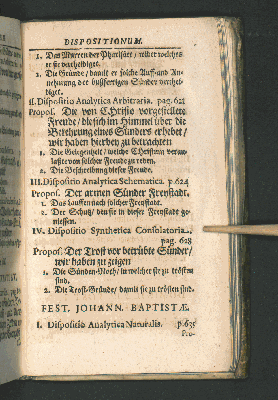 DISPOSITIONUM.
1. Das Murren der Pharisäer / wider welches
er sie vertheidiget.
2. Die Gründe / damit er solche Auff- und An-
nehmung der bußfertigen Sünder verthei-
diget.
II. Dispositio Analytica Arbitraria. pag. 621
Propos. Die von Christo vorgestellete
Freude / die sich im Himmel über die
Bekehrung eines Sünders erhebet /
wir haben hierbey zu betrachten
1. Die Gelegenheit / welche Christum veran-
lasset von solcher Freude zu reden.
2. Die Beschreibung dieser Freude.
III. Dispositio Analytica Schematica. p. 624
Propos. Der armen Sünder Freystadt.
1. Das lauffen nach solcher Freystadt.
2. Der Schutz / den sie in dieser Freystadt ge-
niessen.
IV. Dispositio Synthetica Consolatoria.
pag. 628
Propos. Der Trost vor betrübte Sünder /
wir haben zu zeigen
1. Die Sünden-Noth / in welcher sie zu trösten
sind.
2. Die Trost-Gründe / damit sie zu trösten sind.
FEST. JOHANN. BAPTISTÆ.
I. Dispositio Analytica Naturalis. p. 635
Pro-